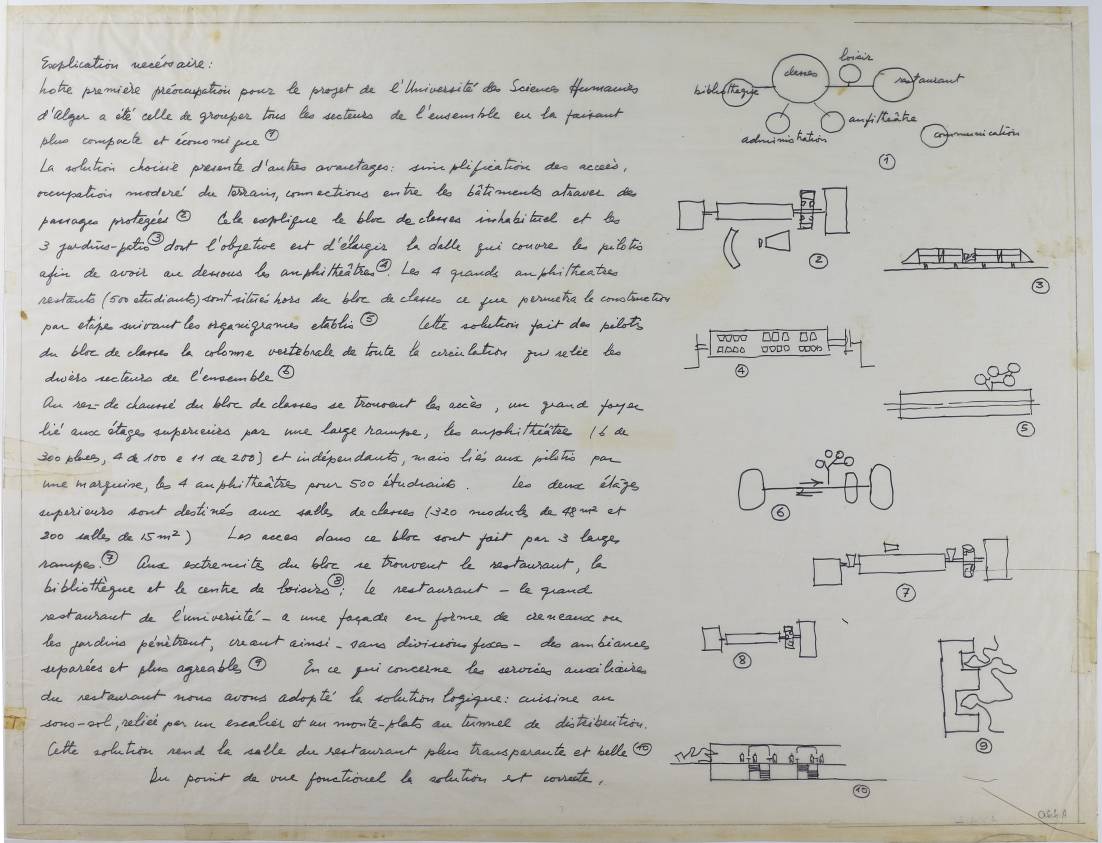 Explication necéssaire:
Notre première préocupation pour le projet de l'Université des Sciences Humaines
d'Alger a été celle de grouper tous les secteurs de l'ensemble en la faisant
plus compacte et économique 1
La solution choisie presente d'autres avantages: simplification des accès,
occupation moderé du terrain, connections entre les bâtiments atraver des
passages protegées 2 Cela explique le bloc de classes inhabituel et les
3 jardins-patio 3 dont l'objetive est d'élargir la dalle qui couvre les pilotis
afin de avoir au dessous les amphitheâtres 4. Les 4 grands amphitheatres
restants (500 etudiants) sont situés hors du bloc de classes ce que permetra la construction
par etapes suivant les organigrames etablis 5 Cette solution fait des pilotis
du bloc de classes la colonne vertébrale de toute la circulation qui relie les
divers secteurs de l'ensemble 6
Au rez-de chaussé du bloc de classes se trouvent les accès, un grand foyer
lié aux étages superieurs par une large rampe, les amphithéâtre (6 de
300 places, 4 de 100 e 11 de 200) et indépendants, mais liés aux pilotis par
une marquise, les 4 amphitheâtres pour 500 étudiants. Les deux étages
superieurs sont destinés aux salles de classes (320 modules de 48 m² et
200 salles de 15 m²) Les acces dans ce bloc sont fait par 3 larges
rampes. 7 Aux extremités du bloc se trouvent le restaurant, la
bibliothèque et le centre de loisirs 8; Le restaurant - le grand
restaurant de l'université - a une façade en forme de creneaux ou
les jardins pénètrent, creant ainsi - sans divisions fixes - des ambiances
separées et plus agreables 9 En ce qui concerne les services auxiliaires
du restaurant nous avons adopté la solution logique: cuisine au
sous-sol, reliée par un escalier et un monte-plats au tunnel de distribution.
Cette solution rend la salle du restaurant plus transparante et belle 10
Du point de vue fonctionel la solution est correcte,
loisir
classes
restaurant
bibliotheque
amfitheâtre
administration
communication
1
2
3
4
5
6
7
8
9
10